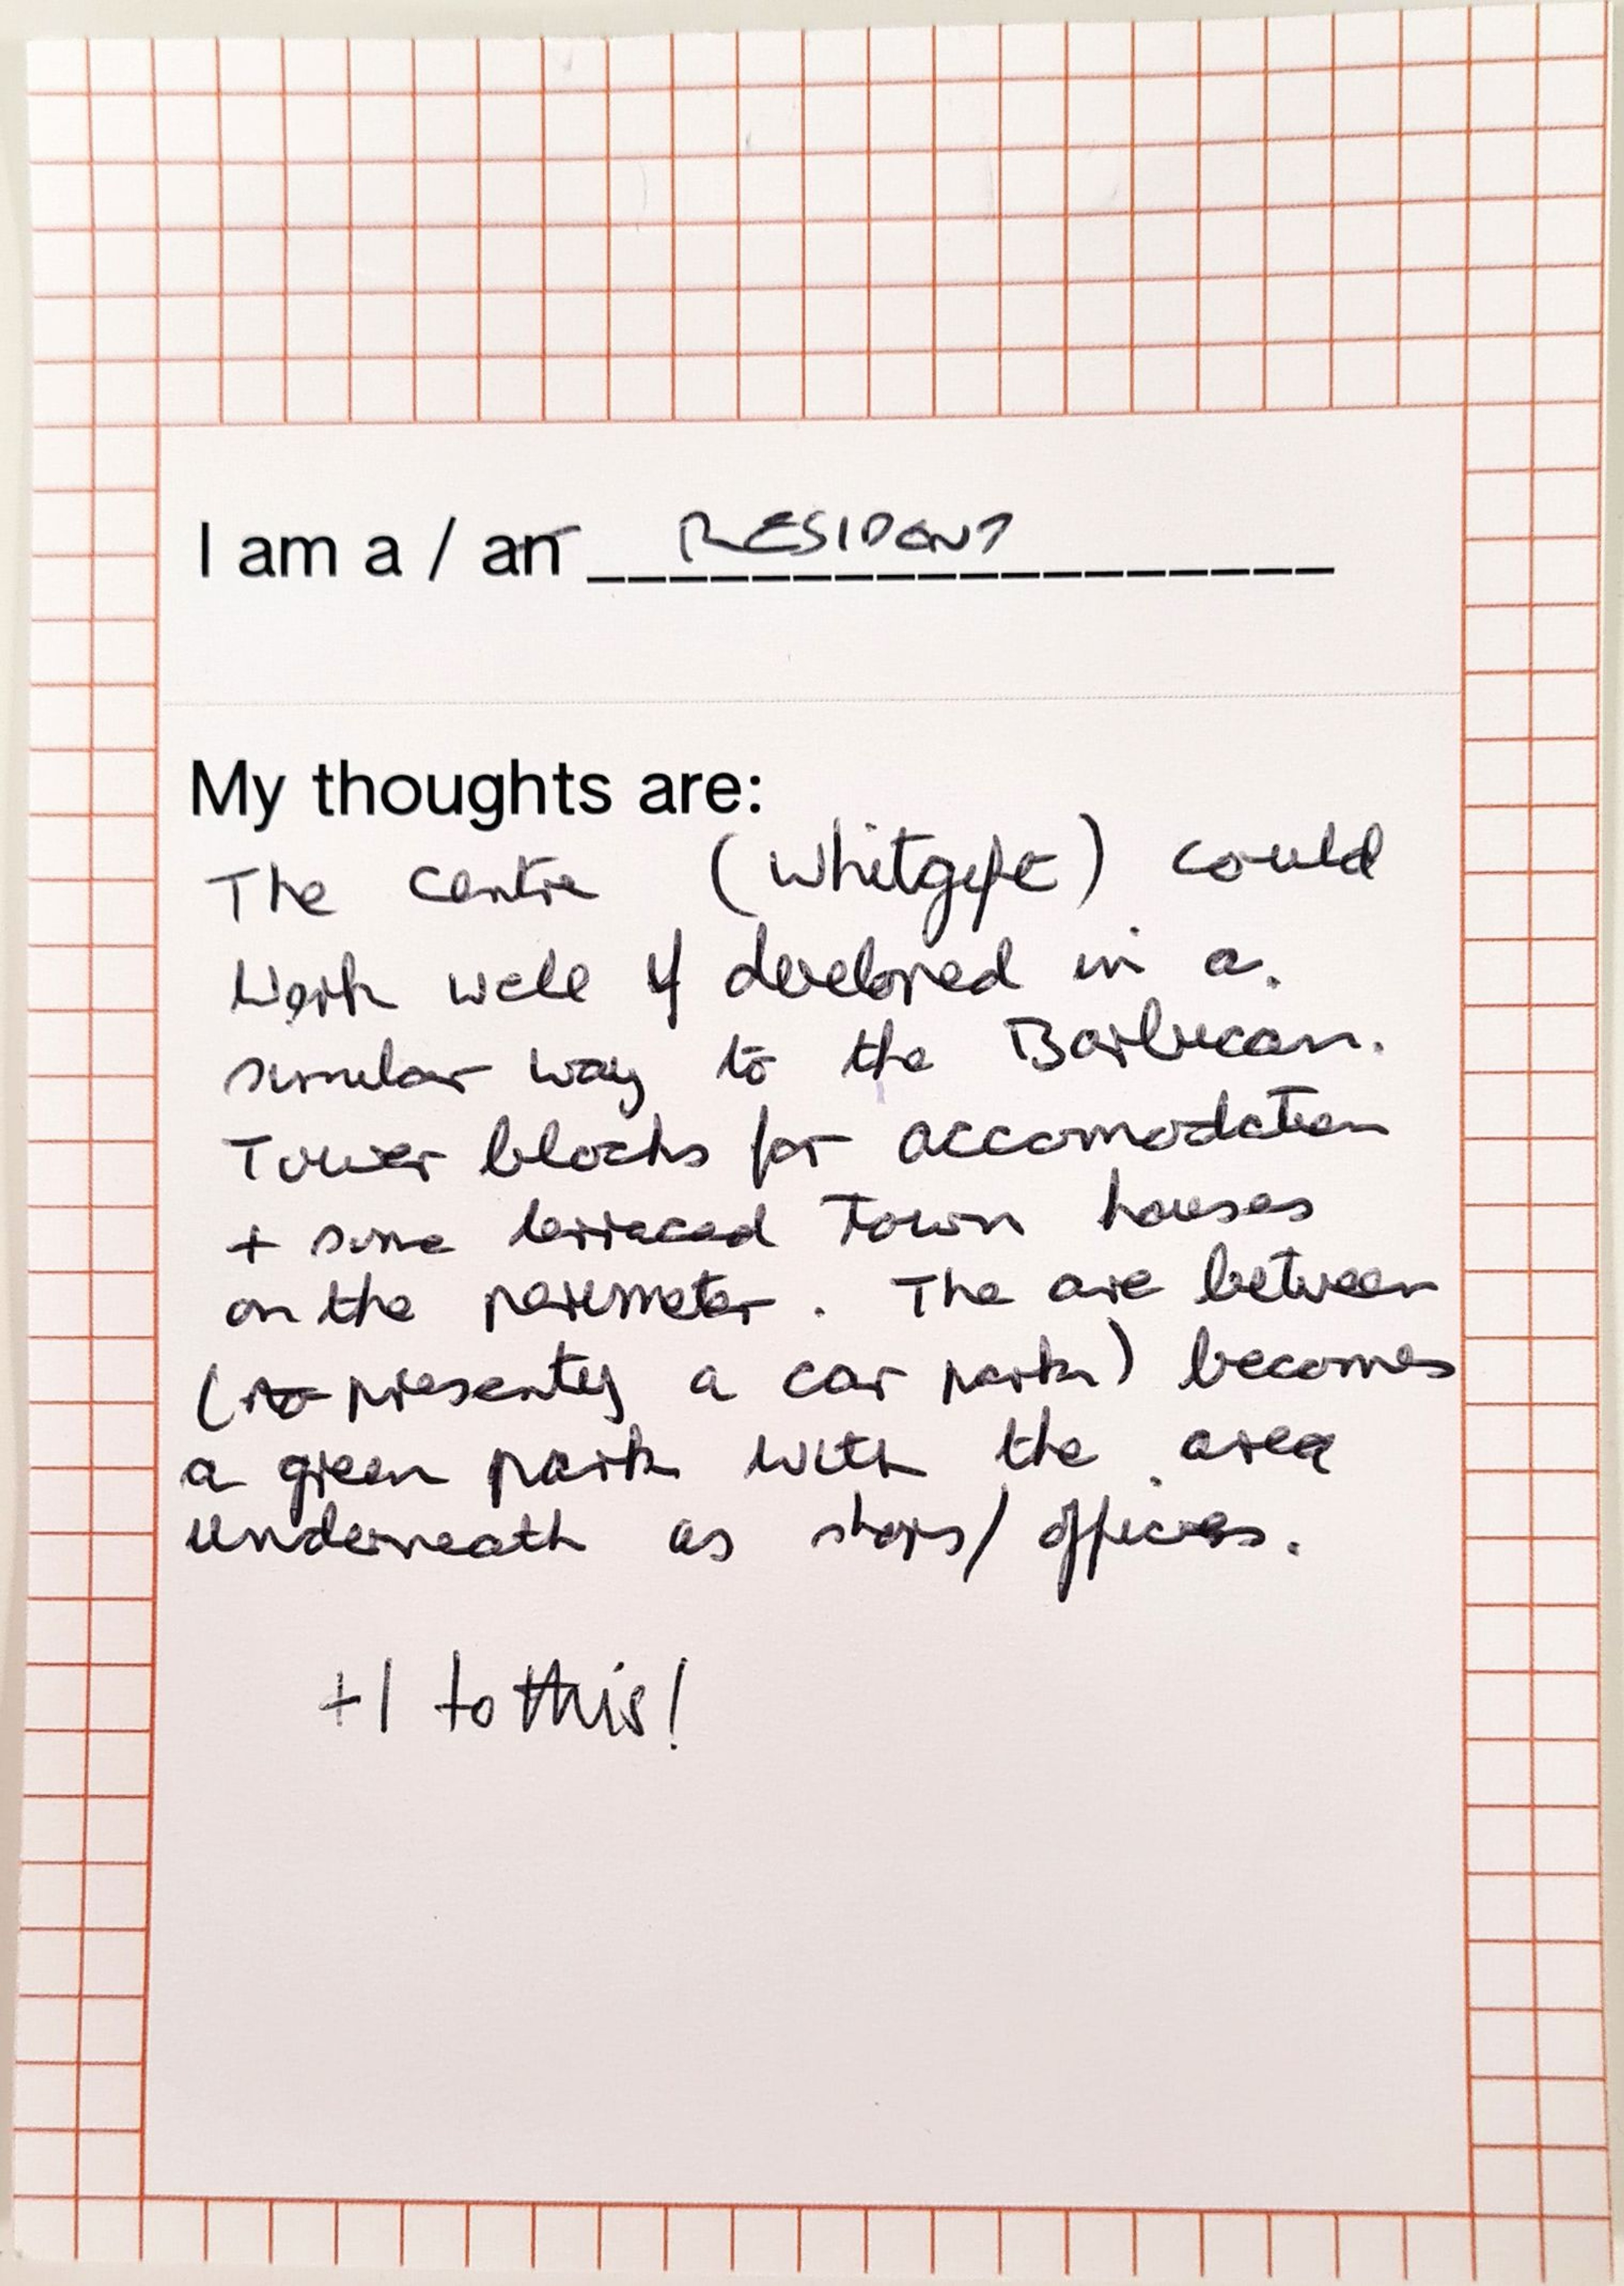 I am a / an RESIDENT
My thoughts are:
The centre (Whitgift) could
work well if developed in a
similar way to the Barbican.
Tower blocks for accomodation
+ some terraced Town houses
on the perimeter. The are between
(presently a car park) becomes
a green park with the area
underneath as shops/offices.
+1 to this!